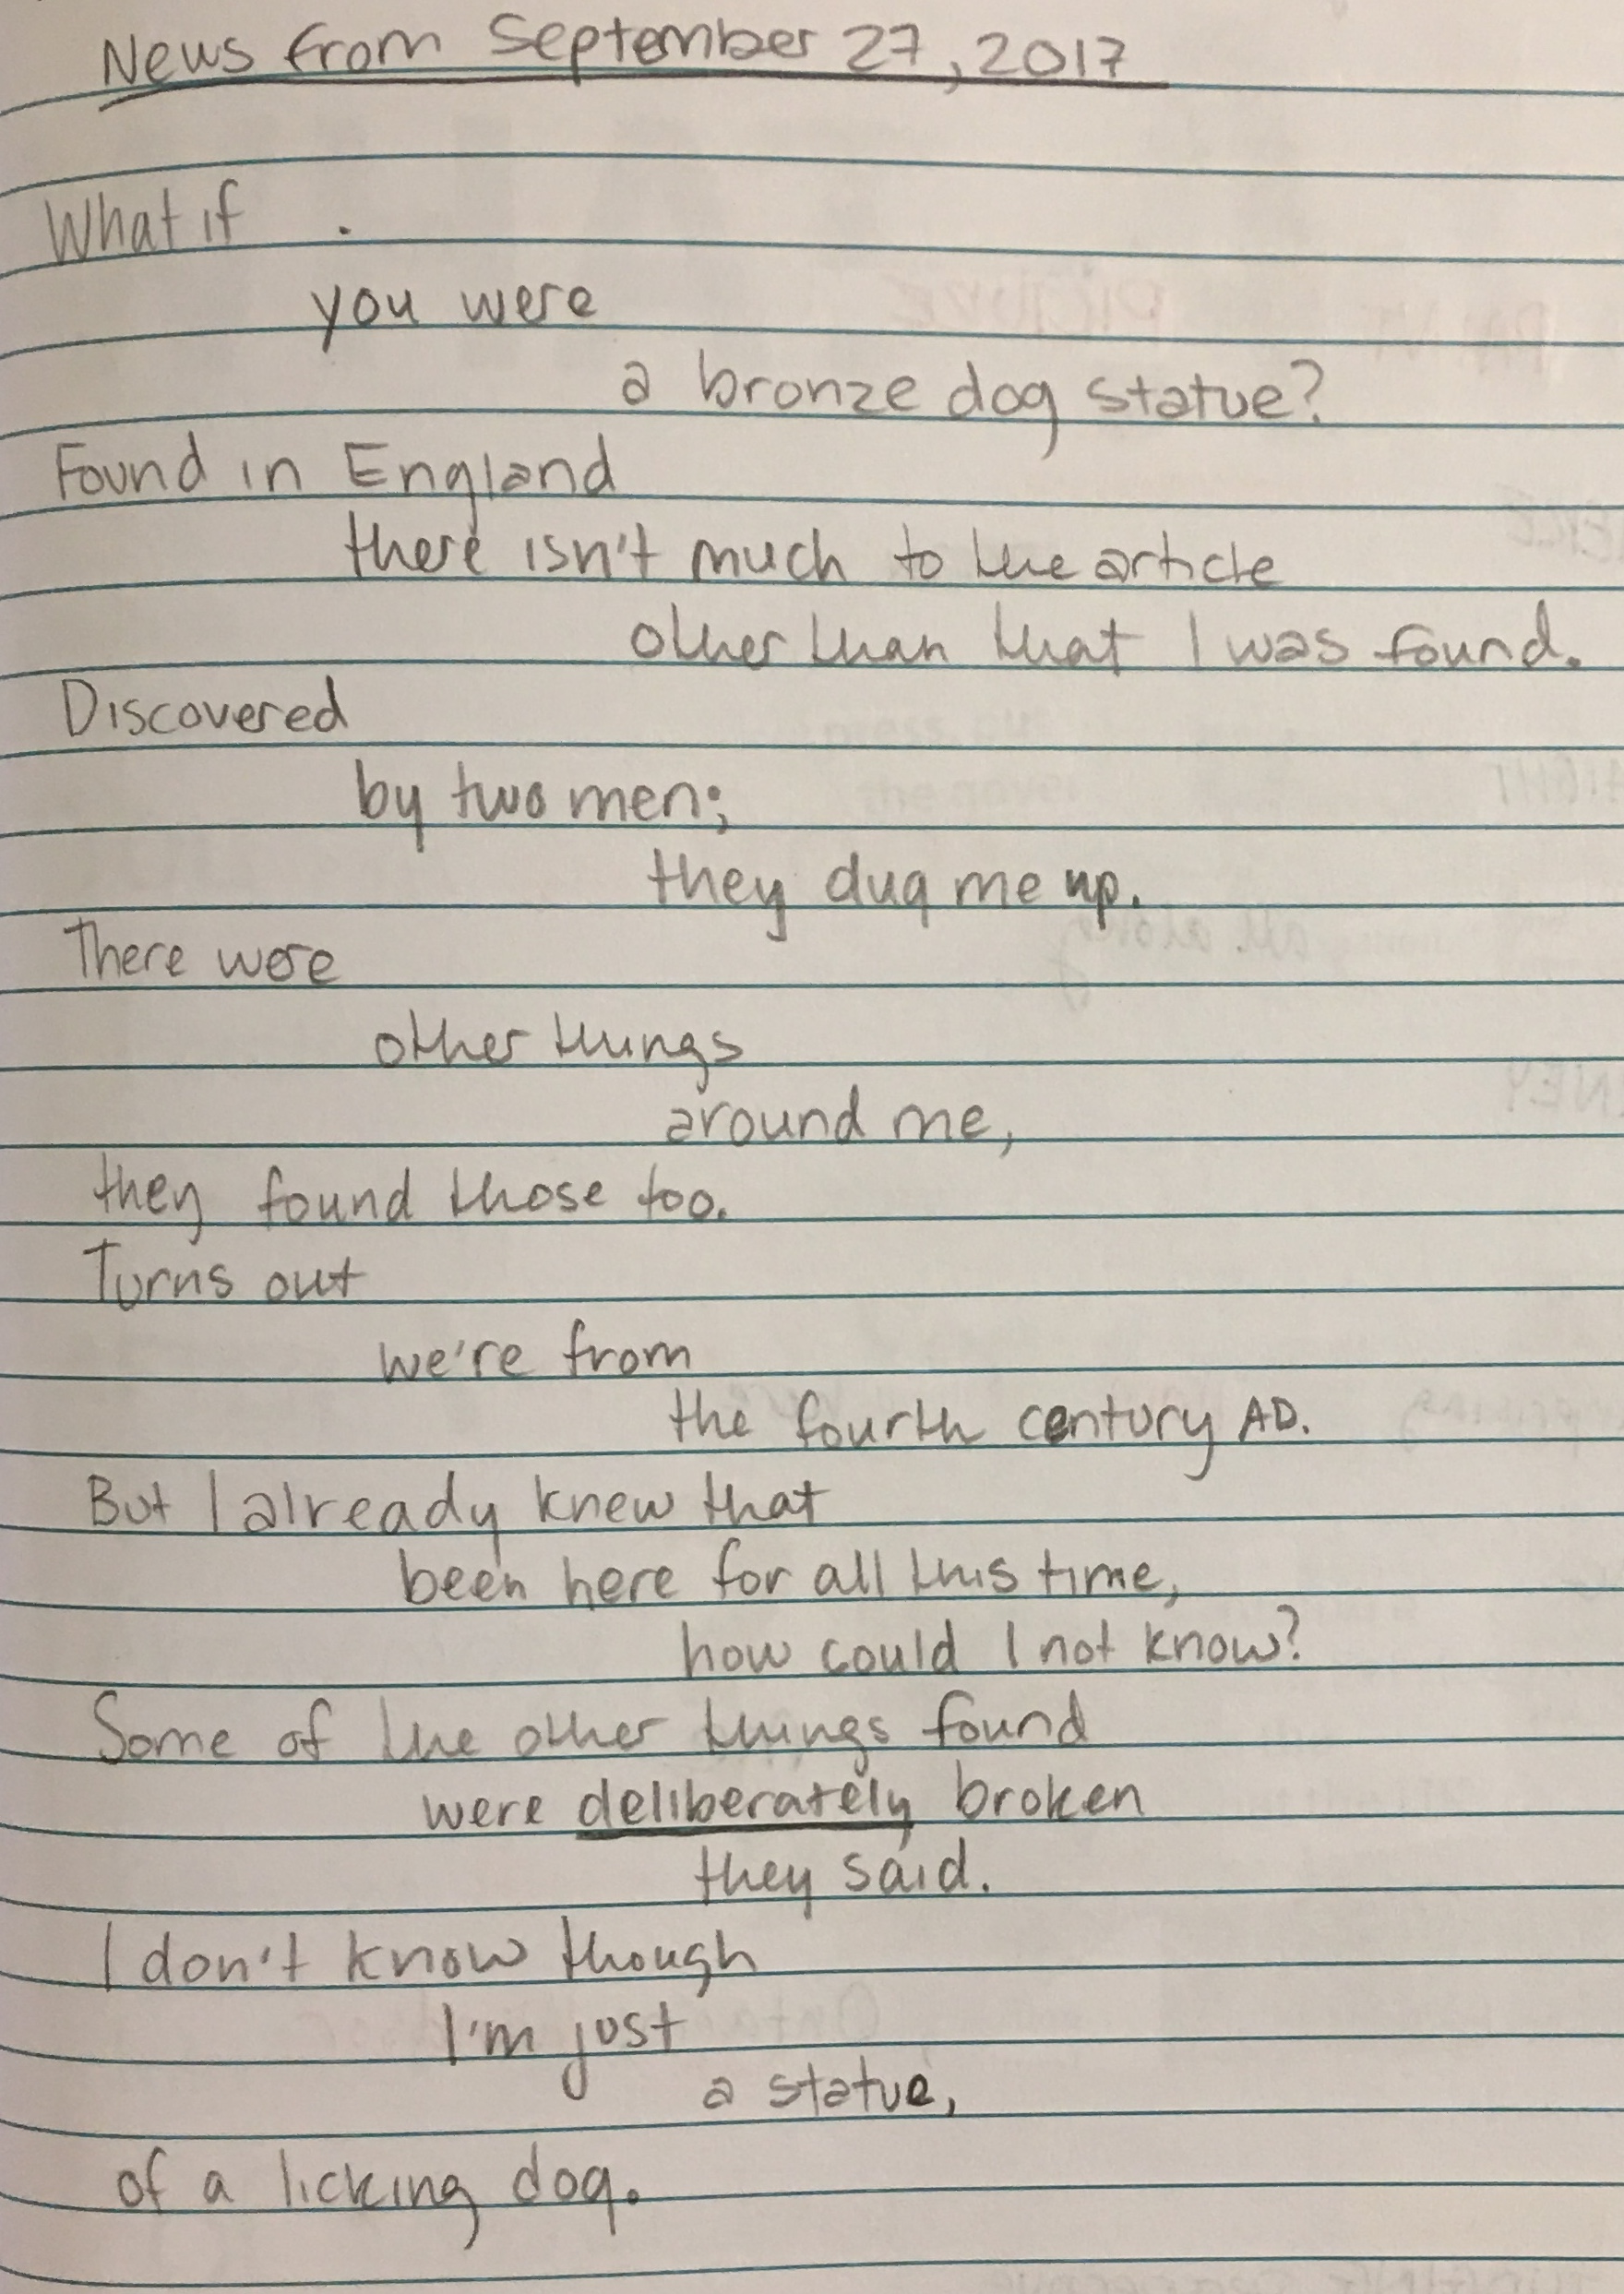 News from September 27, 2017
What if
you were
a bronze dog statue?
Found in England
there isn't much to the article
other than that I was found.
Discovered
by two men;
they dug me up.
There were
other things
around me,
they found those too.
Turns out
we're from
the fourth century AD.
But I already knew that
been here for all this time,
how could I not know?
Some of the other things found
were deliberately broken
they said.
I don't know though
I'm just
a statue,
of a licking dog.